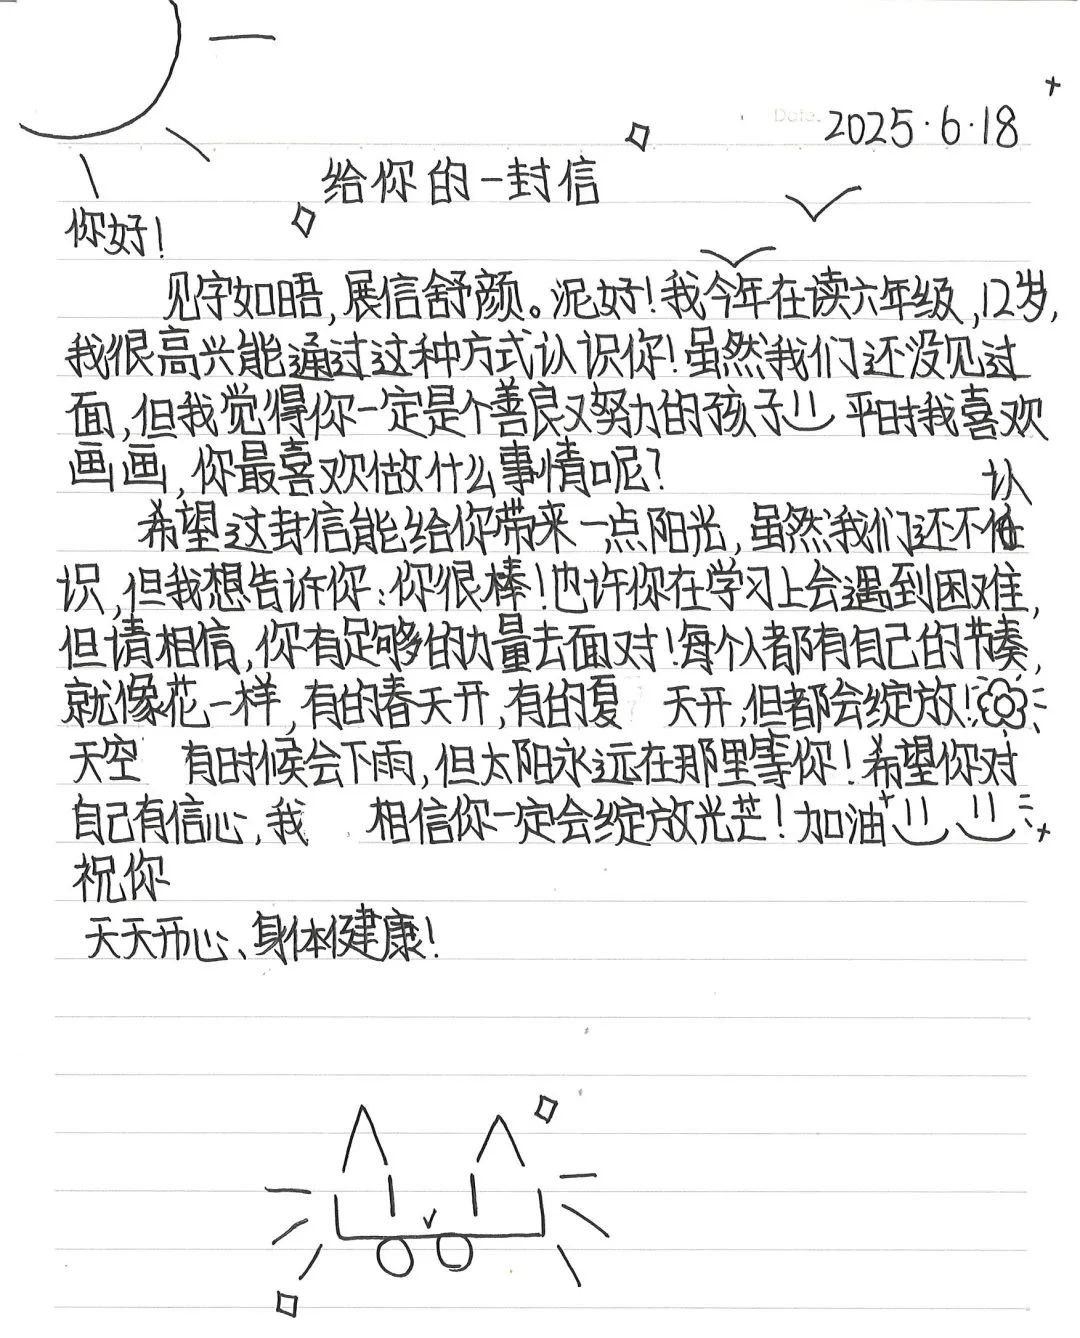 Date. 2025.6.18
给你的一封信
你好!
见字如晤,展信舒颜。泥好!我今年在读六年级,12岁,
我很高兴能通过这种方式认识你!虽然我们还没见过
面,但我觉得你一定是个善良又努力的孩子 平时我喜欢
画画,你最喜欢做什么事情呢?
希望这封信能给你带来一点阳光,虽然我们还不认
识,但我想告诉你:你很棒!也许你在学习上会遇到困难,
但请相信,你有足够的力量去面对!每个人都有自己的节奏,
就像花一样,有的春天开,有的夏 天开,但都会绽放!
天空 有时候会下雨,但太阳永远在那里等你!希望你对
自己有信心,我 相信你一定会绽放光芒!加油
祝你
天天开心、身体健康!